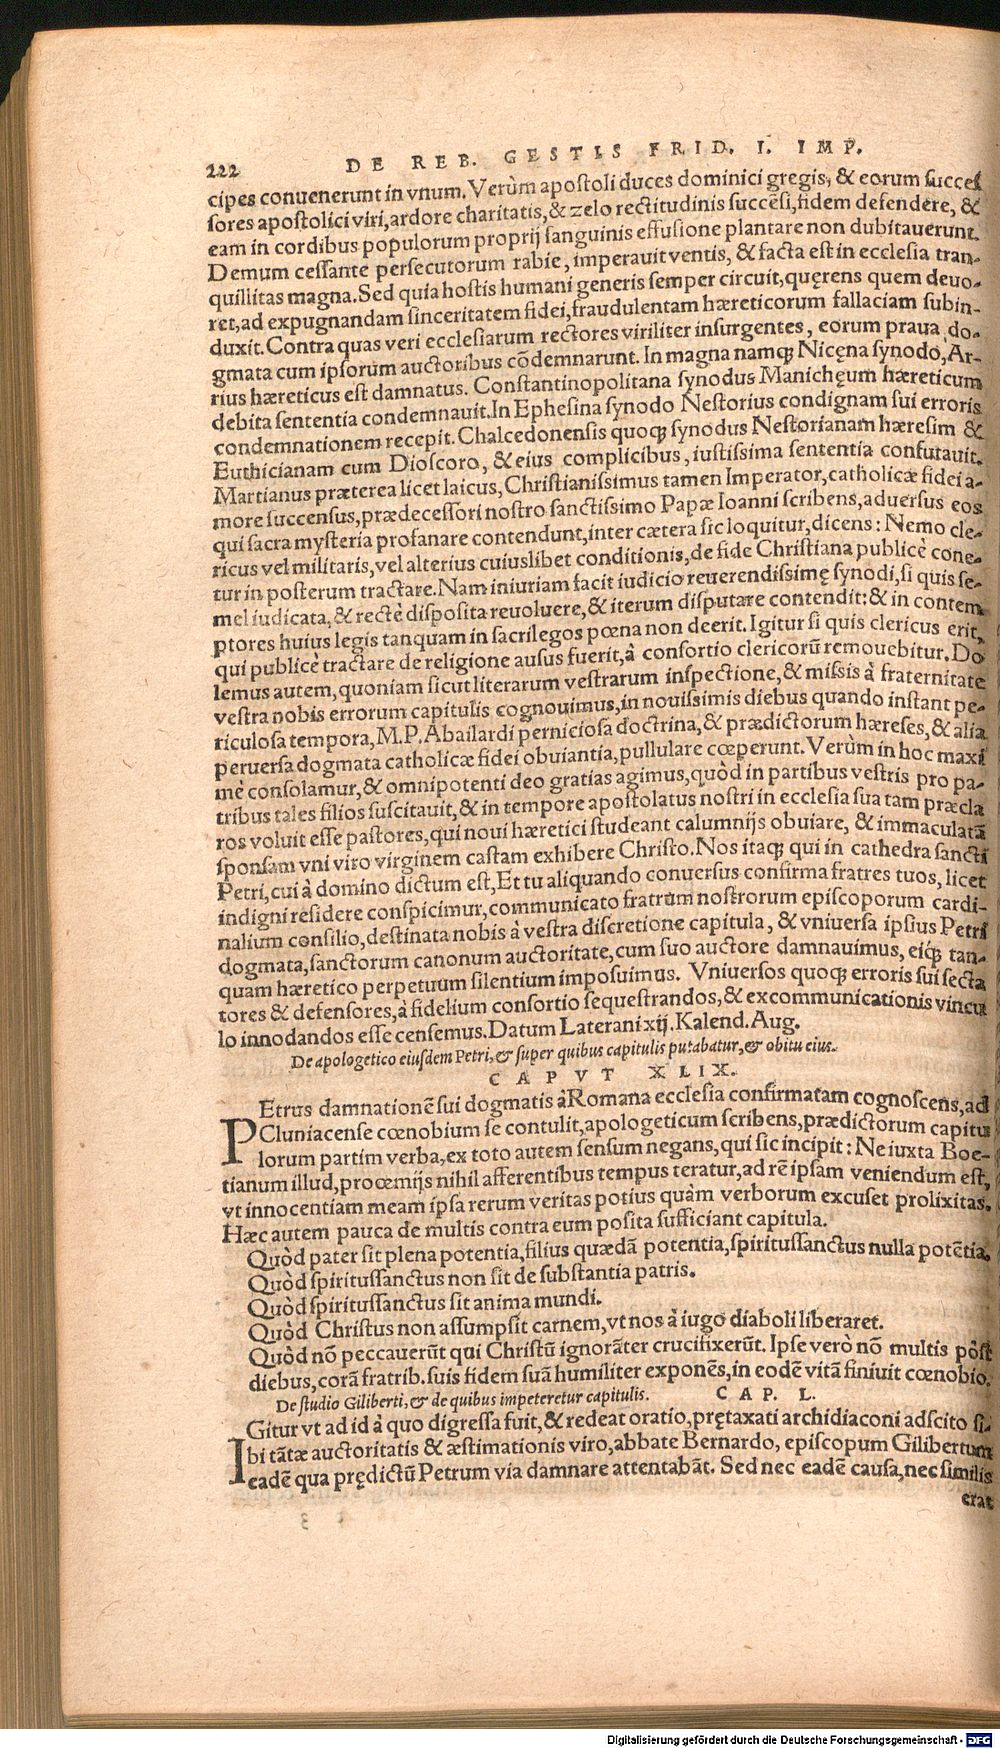 222 DE REB. GESTIS FRID. I. IMP.
cipes conuenerunt in vnum. Verùm apostoli duces dominici gregis, & eorum succes
sores apostolici viri, ardore charitatis, & zelo rectitudinis succēsi, fidem defendere, &
eam in cordibus populorum proprij sanguinis effusione plantare non dubitauerunt.
Demum cessante persecutorum rabie, imperauit ventis, & facta est in ecclesia tran-
quillitas magna. Sed quia hostis humani generis semper circuit, quęrens quem deuo-
ret, ad expugnandam sinceritatem fidei, fraudulentam hæreticorum fallaciam subin-
duxit. Contra quas veri ecclesiarum rectores viriliter insurgentes, eorum praua do-
gmata cum ipsorum auctoribus cōdemnarunt. In magna namq; Nicęna synodo, Ar-
rius hæreticus est damnatus. Constantinopolitana synodus Manichęum hæreticum
debita sententia condemnauit. In Ephesina synodo Nestorius condignam sui erroris
condemnationem recepit. Chalcedonensis quoq; synodus Nestorianam hæresim &
Euthicianam cum Dioscoro, & eius complicibus, iustissima sententia confutauit.
Martianus præterea licet laicus, Christianissimus tamen Imperator, catholicæ fidei a-
more succensus, prædecessori nostro sanctissimo Papæ Ioanni scribens, aduersus eos
qui sacra mysteria profanare contendunt, inter cætera sic loquitur, dicens: Nemo cle-
ricus vel militaris, vel alterius cuiuslibet conditionis, de fide Christiana publicè cone-
tur in posterum tractare. Nam iniuriam facit iudicio reuerendissimę synodi, si quis se-
mel iudicata, & rectè disposita reuoluere, & iterum disputare contendit: & in contem
ptores huius legis tanquam in sacrilegos pœna non deerit. Igitur si quis clericus erit,
qui publicè tractare de religione ausus fuerit, à consortio clericorū remouebitur. Do
lemus autem, quoniam sicut literarum vestrarum inspectione, & missis à fraternitate
vestra nobis errorum capitulis cognouimus, in nouissimis diebus quando instant pe-
riculosa tempora, M. P. Abailardi perniciosa doctrina, & prædictorum hæreses, & alia
peruersa dogmata catholicæ fidei obuiantia, pullulare cœperunt. Verùm in hoc maxi
mè consolamur, & omnipotenti deo gratias agimus, quòd in partibus vestris pro pa-
tribus tales filios suscitauit, & in tempore apostolatus nostri in ecclesia sua tam præcla
ros voluit esse pastores, qui noui hæretici studeant calumnijs obuiare, & immaculatā
sponsam vni viro virginem castam exhibere Christo. Nos itaq; qui in cathedra sancti
Petri, cui à domino dictum est, Et tu aliquando conuersus confirma fratres tuos, licet
indigni residere conspicimur, communicato fratrum nostrorum episcoporum cardi-
nalium consilio, destinata nobis à vestra discretione capitula, & vniuersa ipsius Petri
dogmata, sanctorum canonum auctoritate, cum suo auctore damnauimus, eiq́; tan-
quam hæretico perpetuum silentium imposuimus. Vniuersos quoq; erroris sui secta
tores & defensores, à fidelium consortio sequestrandos, & excommunicationis vincu
lo innodandos esse censemus. Datum Laterani xij. Kalend. Aug.
De apologetico eiusdem Petri, & super quibus capitulis putabatur, & obitu eius.
CAPVT XLIX.
PEtrus damnationē sui dogmatis à Romana ecclesia confirmatam cognoscens, ad
Cluniacense cœnobium se contulit, apologeticum scribens, prædictorum capitu
lorum partim verba, ex toto autem sensum negans, qui sic incipit: Ne iuxta Boe-
tianum illud, proœmijs nihil afferentibus tempus teratur, ad rē ipsam veniendum est,
vt innocentiam meam ipsa rerum veritas potius quàm verborum excuset prolixitas.
Hæc autem pauca de multis contra eum posita sufficiant capitula.
Quòd pater sit plena potentia, filius quædā potentia, spiritussanctus nulla potētia.
Quòd spiritussanctus non sit de substantia patris.
Quòd spiritussanctus sit anima mundi.
Quòd Christus non assumpsit carnem, vt nos à iugo diaboli liberaret.
Quòd nō peccauerūt qui Christū ignorāter crucifixerūt. Ipse verò nō multis pòst
diebus, corā fratrib. suis fidem suā humiliter exponēs, in eodē vitā finiuit cœnobio.
De studio Giliberti, & de quibus impeteretur capitulis. CAP. L.
IGitur vt ad id à quo digressa fuit, & redeat oratio, prętaxati archidiaconi adscito si-
bi tātæ auctoritatis & æstimationis viro, abbate Bernardo, episcopum Gilibertum
eadē qua prędictū Petrum via damnare attentabāt. Sed nec eadē causa, nec similis
erat
Digitalisierung gefördert durch die Deutsche Forschungsgemeinschaft - DFG